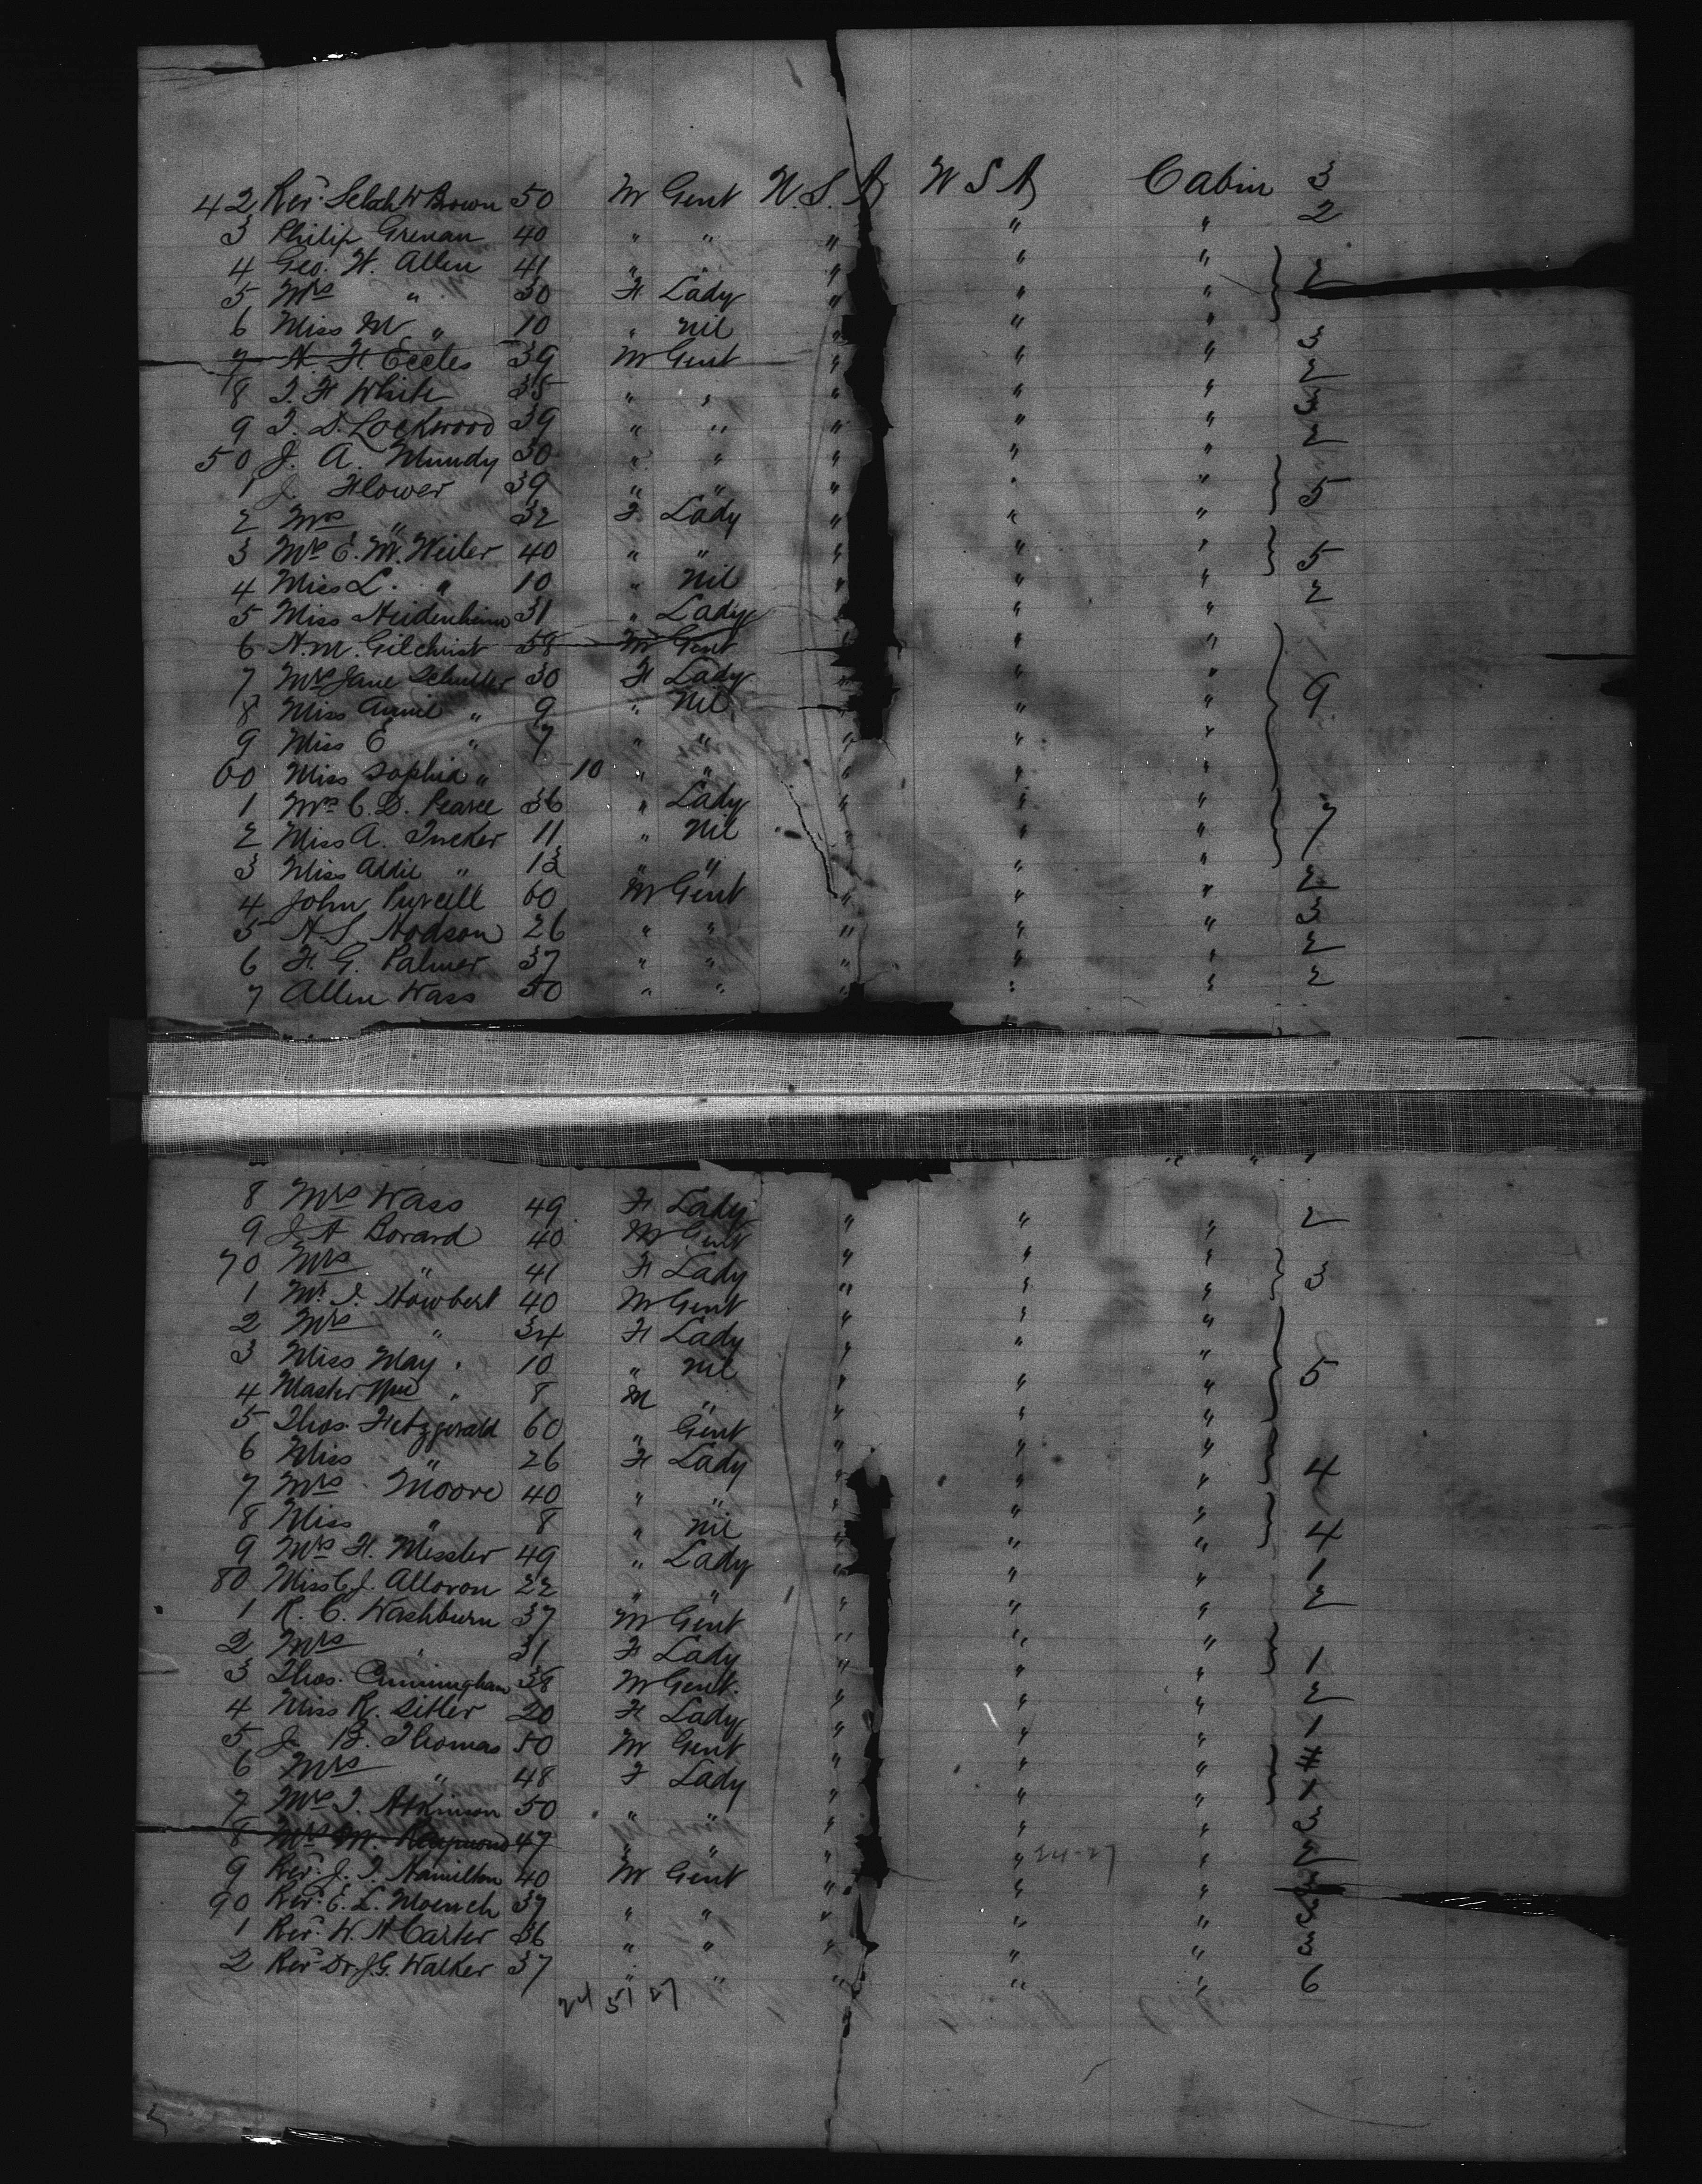 42 Rev. Selah W Brown 50 M Gent U.S.A U S A Cabin 3
3 Philip Grenan 40 " " " " " 2
4 Geo. W. Allen 41 " " " " "
5 Mrs " 30 F Lady " " " 2
6 Miss M " 10 " Nil " " "
7 H. H. Eccles 39 M Gent " " " 3
8 J. H White 35 " " " " " 2
9 J. D. Lockwood 39 " " " " " 3
50 J. A. Mundy 30 " " " " " 2
1 J. Flower 39 " " " " "
2 Mrs " 32 F Lady " " " 5
3 Mrs E. M. Weiler 40 " " " " "
4 Miss L. " 10 " Nil " " " 5
5 Miss Heidenheim 31 " Lady " " " 2
6 H. M. Gilchrist 58 M Gent " "
7 Mrs Jane Schuller 30 F Lady " " "
8 Miss Annie " 9 " Nil " " " 9
9 Miss E " 7 " " " " "
60 Miss Sophia " 10 " " " " "
1 Mrs C. D. Pearce 36 " Lady " " "
2 Miss A. Tucker 11 " Nil " " " 7
3 Miss Addie " 13 " " " " "
4 John Purcell 60 M Gent " " " 2
5 H. S. Hodson 26 " " " " " 3
6 F. G. Palmer 37 " " " " " 2
7 Allen Wass 50 " " " " " 2
8 Mrs Wass 49 F Lady " " " 2
9 J A Bovard 40 M Gent " " "
70 Mrs " 41 F Lady " " " 3
1 Mr I. Howbert 40 M Gent " " "
2 Mrs " 34 F Lady " " "
3 Miss May " 10 " Nil " " " 5
4 Master Wm " 8 M " " " "
5 Thos. Fitzgerald 60 " Gent " " "
6 Miss " 26 F Lady " " " 4
7 Mrs Moore 40 " " " " "
8 Miss " 8 " Nil " " " 4
9 Mrs H. Messler 49 " Lady " " " 1
80 Miss C. J. 22 " " " " " 2
1 R. C. Washburn 37 M Gent " " "
2 Mrs " 31 F Lady " " " 1
3 Thos. Cunningham 38 M Gent. " " " 2
4 Miss R. Sitler 20 F Lady " " " 1
5 J. B. Thomas 50 M Gent " " "
6 Mrs " 48 F Lady " " "
7 Mrs J. Atkinson 50 " " " " " 3
8 Mrs M. Raymond 47 " " " " 24-27 "
9 Rev. J. T. Hamilton 40 M Gent " " "
90 Rev. E. L. Moench 37 " " " " "
1 Rev. W. N Carter 36 " " " " " 3
2 Rev Dr. J. G. Walker 37 " " " " " 6
24 51 27